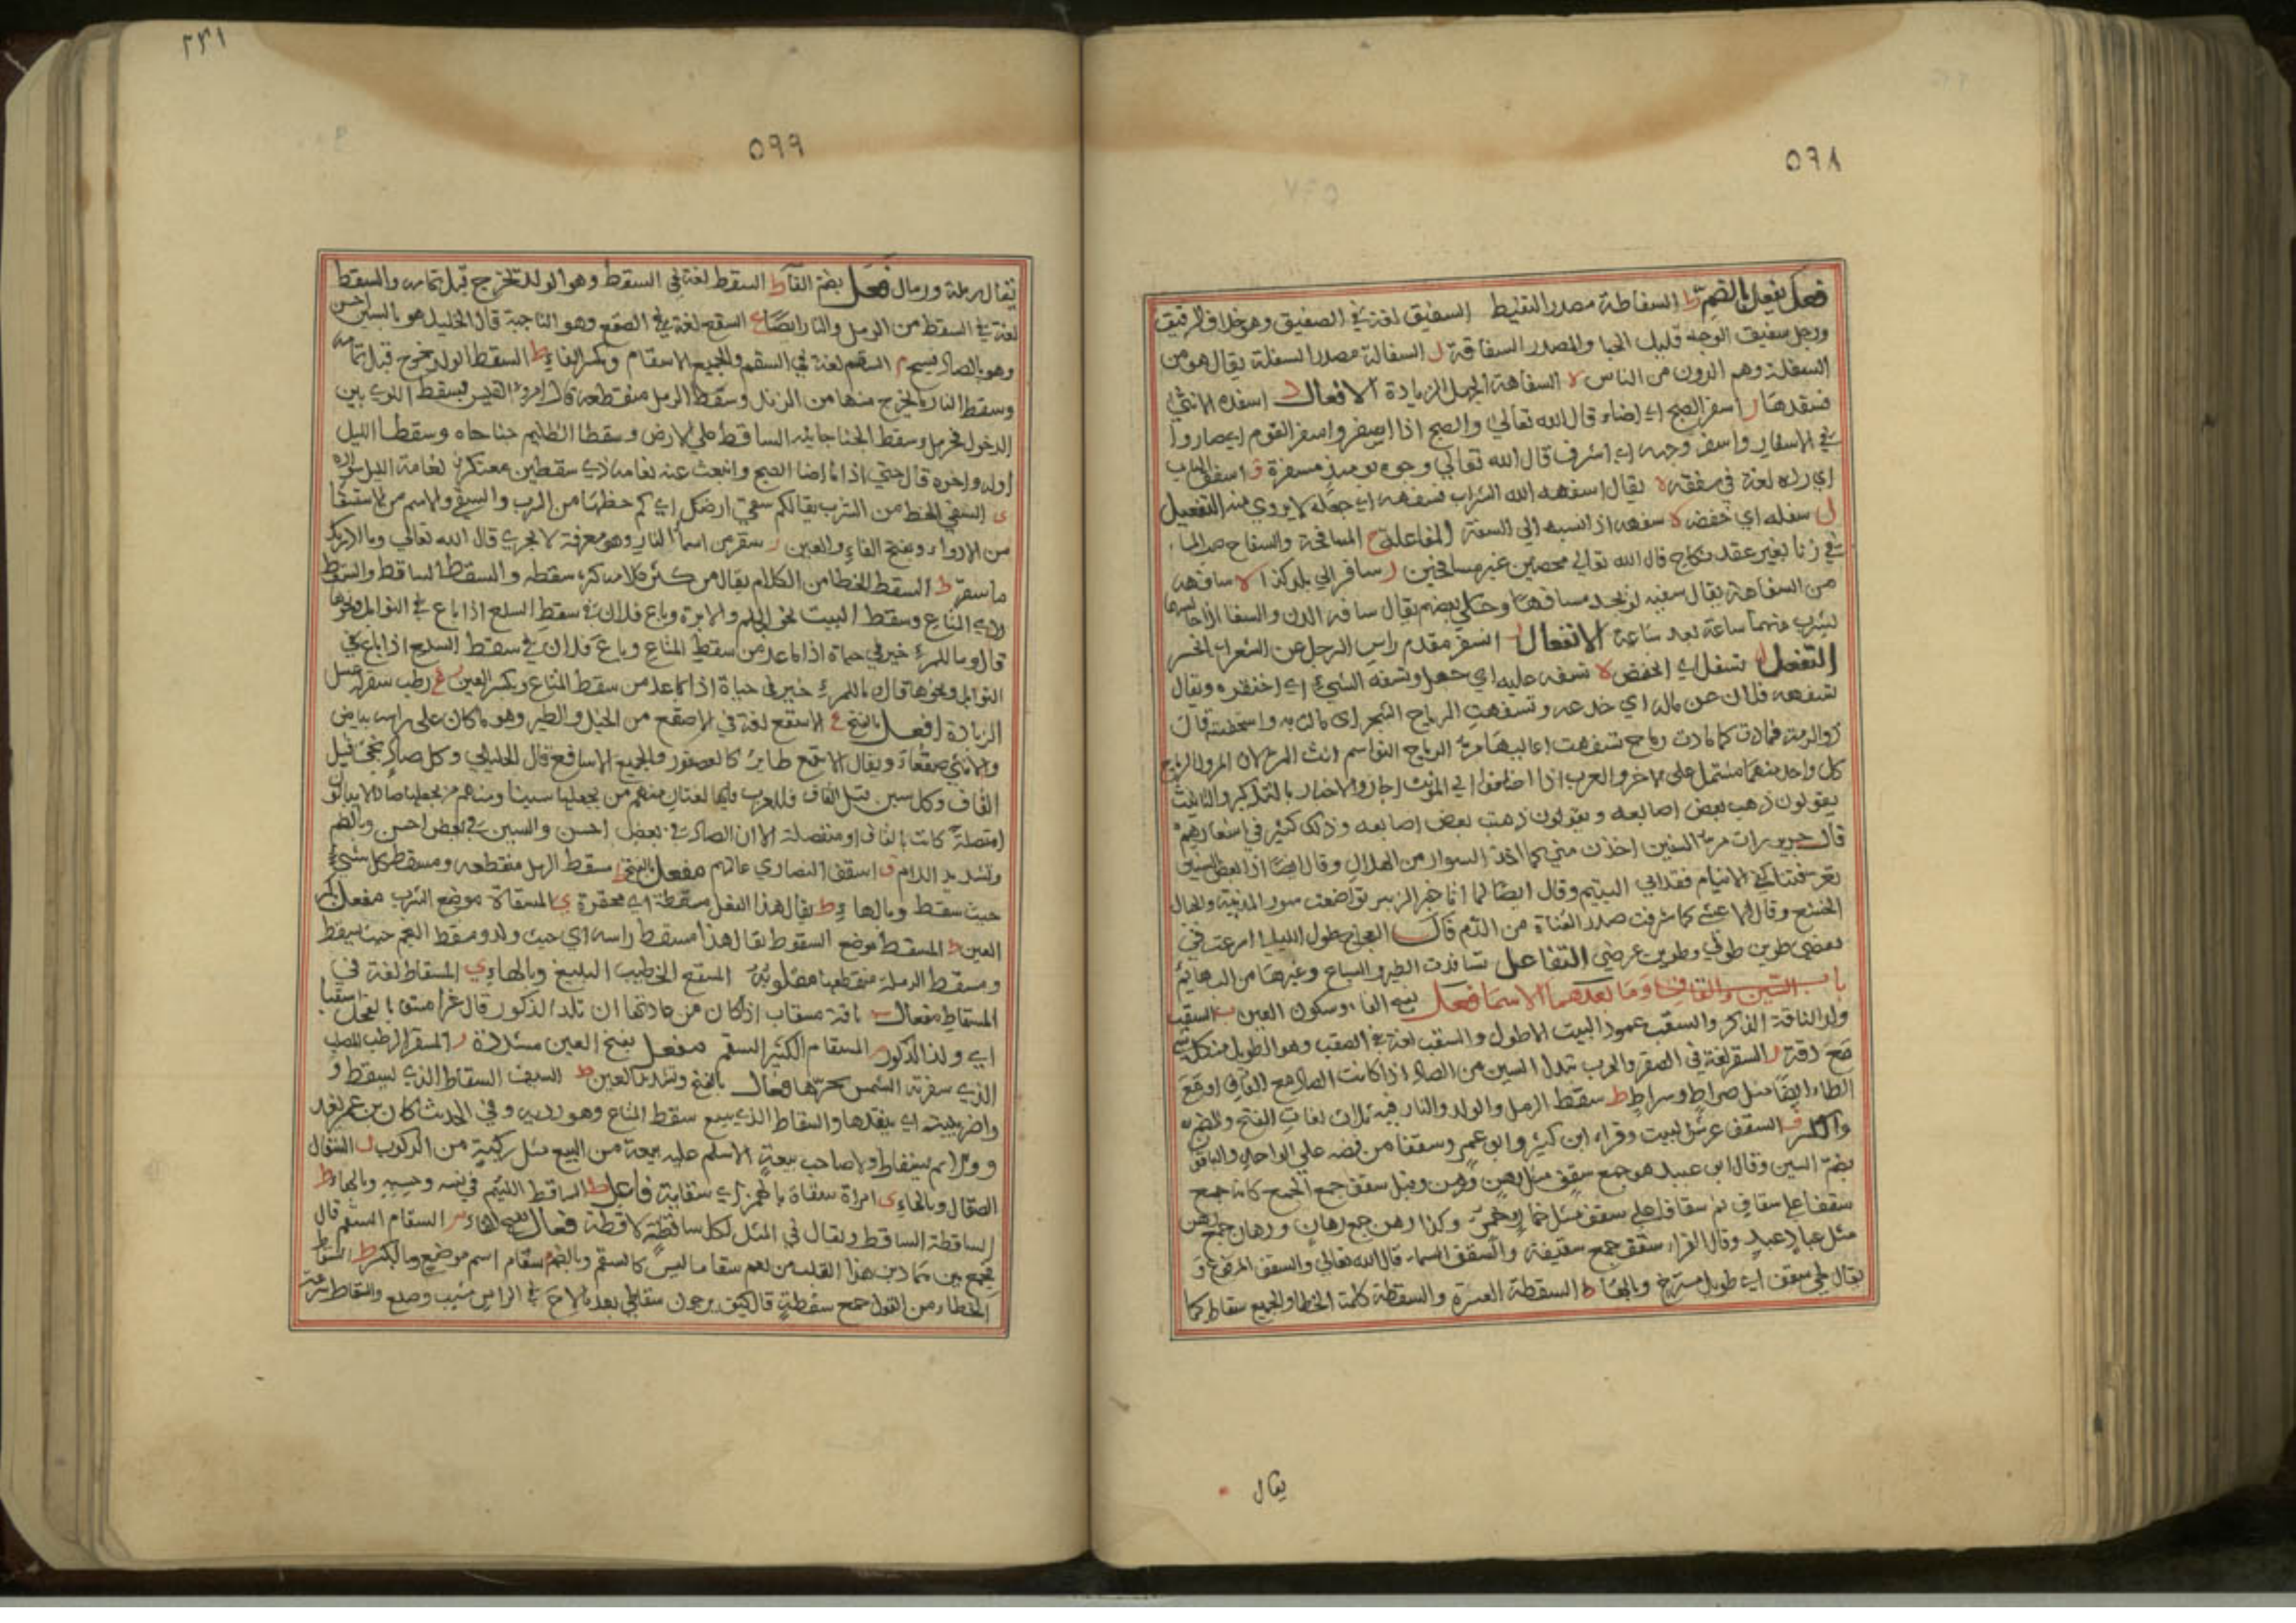 ٥٩٨
فعل يفعل بالضم ط السفاطة مصدر السفيط السفيق لغة في الصفيق وهو خلاف الرقيق
ورجل سفيق الوجه قليل الحيا والمصدر السفاقة ل السفالة مصدر السفلة يقال هو من
السفلة وهم الدون من الناس ه السفاهة الجهل الزيادة الافعال د اسفده الانثى
فسفدها ر اسفر الصبح اي اضاء قال الله تعالى والصبح اذا اسفر واسفر القوم اي صاروا
في الاسفار واسفر وجهه اي اشرف قال الله تعالى وجوه يومئذ مسفرة ق اسفق الباب
اي رده لغة في صفقه ه يقال اسفهه الله الشراب فسفهه اي جعله لا يروي منه التفعيل
ل سفله اي خفضه ه سفهه اذا نسبه الى السفة المفاعلة ح المسافحة والسفاح صب الماء
في زنا بغير عقد نكاح قال الله تعالى محصنين غير مسافحين ر سافر الى بلد كذا ه سافهه
من السفاهة يقال سفيه لم يجد مسافها وحكى بعضهم يقال سافه الدن والسقا اذا
يشرب منهما ساعة بعد ساعة الانفعال ر انسفر مقدم راس الرجل عن الشعر اي انحسر
التفعل ل تسفل اي انخفض ه تسفه عليه اي جهل وتسفه الشيء اي احتقره ويقال
تسفهه فلان عن ماله اي خدعه وتسفهت الرياح الشجر اي مالت به واستخفته قال
ذوالرمة فمادت كما مادت رياح تسفهت اعاليها مر الرياح النواسم انث المر لان المر والرياح
كل واحد منهما مشتمل على الاخر والعرب اذا اضافوا الى المؤنث اجازوا الاخبار بالتذكير والتانيث
يقولون ذهب بعض اصابعه ويقولون ذهبت بعض اصابعه وذلك كثير في اشعارهم
قال جرير رات مر السنين اخذن مني كما اخذ السرار من الهلال وقال ايضا اذا بعض السنين
تعرفتنا كفى الايتام فقد ابي اليتيم وقال ايضا لما اتا خبر الزبير تواضعت سور المدينة والجبال
الخشع وقال الاعشى كما شرقت صدر القناة من الدم قال العجاج طول الليالي اسرعت في
نقضي طوين طولي وطوين عرضي التفاعل تسافدت الطير والسباع وغيرها من البهائم
باب السين والقاف وما بعدهما الاسما فعل بفتح الفاء وسكون العين ب السقب
ولد الناقة الذكر والسقب عمود البيت الاطول والسقب لغة في الصقب وهو الطويل من كل شي
مع دقة ر السقر لغة في الصقر والعرب تبدل السين من الصاد اذا كانت الصاد مع القاف او مع
الطاء ايضا مثل صراط وسراط ط سقط الرمل والولد والنار فيه ثلاث لغات الفتح والضم
والكسر ف السقف عرش البيت وقراء ابن كثير وابو عمرو سقفا من فضه على الواحد والباقون
بضم السين وقال ابو عبيد هو جمع سقف مثل رهن ورهن وقيل سقف جمع الجمع كانه جمع
سقفا على سقاف ثم سقافا على سقف مثل خمار وخمر وكذا رهن جمع رهان ورهان جمع رهن
مثل عباد عبد وقال الفراء سقف جمع سقيفة والسقف السماء قال الله تعالى والسقف المرفوع و
يقال لحي سقف اي طويل مسترخ وبالها ط السقطة العثرة والسقطة كلمة الخطا والجميع سقاط كما
يقال
٢٣١
٥٩٩
يقال رملة ورمال فعل بضم الفا ط السقط لغة في السقط وهو الولد يخرج قبل تمامه والسقط
لغة في السقط من الرمل والنار ايضا ع السقع لغة في الصقع وهو الناحية قال الخليل هو بالسين احسن
وهو بالصاد قبيح م السقم لغة في السقم والجميع الاسقام وبكسر الفاء ط السقط الولد يخرج قبل تمامه
وسقط النار ما يخرج منها من الزند وسقط الرمل منقطعه قال امرؤ القيس بسقط اللوى بين
الدخول فحومل وسقط الجنا جانبه الساقط على الارض وسقطا الظليم جناحاه وسقطا الليل
اوله واخره قال حتى اذا ما اضا الصبح وانبعث عنه نعامة ذي سقطين معتكر نعامة الليل سواده
ى السقي الحظ من الشرب يقال كم سقي ارضكم اي كم حظها من الشرب والسقي والاسم من الاستسقا
من الادواء وبفتح الفاء والعين ر سقر من اسما النار وهو معرفة لا يجري قال الله تعالى وما ادريك
ما سقر ط السقط الخطا من الكلام يقال من كثر كلامه كثر سقطه والسقط الساقط والسقط
ردي المتاع وسقط البيت نحو الجلم والابرة وباع فلان في سقط السلع اذا باع في التوابل ونحوها
قال وما للمرء خير في حياة اذا ما عد من سقط المتاع وباع فلان في سقط السلع اذا باع في
التوابل ونحوها قال ما للمرء خير في حياة اذا ما عد من سقط المتاع وبكسر العين ر رطب سقر عسل
الزيادة افعل بالفتح ع الاسقع لغة في الاصقع من الخيل والطير وهو ما كان على راسه بياض
والانثى صقعا ويقال الاسقع طاير كالعصفور والجميع الاساقع قال الخليل وكل صاد تجيء قبل
القاف وكل سين قبل القاف فللعرب فيها لغتان منهم من يجعلها سينا ومنهم من يجعلها صادا لا يبالون
امتصلة كانت بالقاف او منفصلة الا ان الصاد في بعض احسن والسين في بعض احسن وبالضم
وتشديد اللام ف اسقف النصارى عالمهم مفعل بالفتح ط سقط الرمل منقطعه ومسقط كل شيء
حيث سقط وبالهاء ط يقال هذا الفعل مسقطة اي محقرة ي المسقاة موضع الشرب مفعل بكسر
العين ط المسقط موضع السقوط يقال هذا مسقط راسه اي حيث ولد ومسقط النجم حيث يسقط
ومسقط الرملة منقطعها مقلوبه المسقع الخطيب البليغ وبالهاء ي المسقاط لغة في
المسقاط مفعال ب ناقة مسقاب اذا كان من عادتها ان تلد الذكور قال غرا مسقابا لفحل اسقبا
اي ولد الذكور م المسقام الكثير السقم مفعل بفتح العين مشددة ر المسقر الرطب المصلب
الذي سقرته الشمس بحرها فعال بالفتح وتشديد العين ط السيف السقاط الذي يسقط و
واضربيته اي يقدها والسقاط الذي يبيع سقط المتاع وهو رديه وفي الحديث كان بن عمر يغد
و ولا يمر بسقاط ولا صاحب بيعة الا سلم عليه بيعة من البيع مثل ركبة من الركوب ل السقال
الصقال وبالهاء ى امراة سقاة بالهمز اي سقاية فاعل ط الساقط اللئيم في نفسه وحسبه وبالهاء ط
الساقطة الساقط ويقال في المثل لكل ساقطة لاقطة فعال بفتح الفاء م السقام السقم قال
يجمع بين هذا القلب من لهم سقاما ليس كالسقم وبالضم سقام اسم موضع وبالكسر ط السقاط
الخطاء من القول جمع سقطة قال كيف يرجون سقاطي بعد ما لاح في الراس مشيب وصلع والسقاط